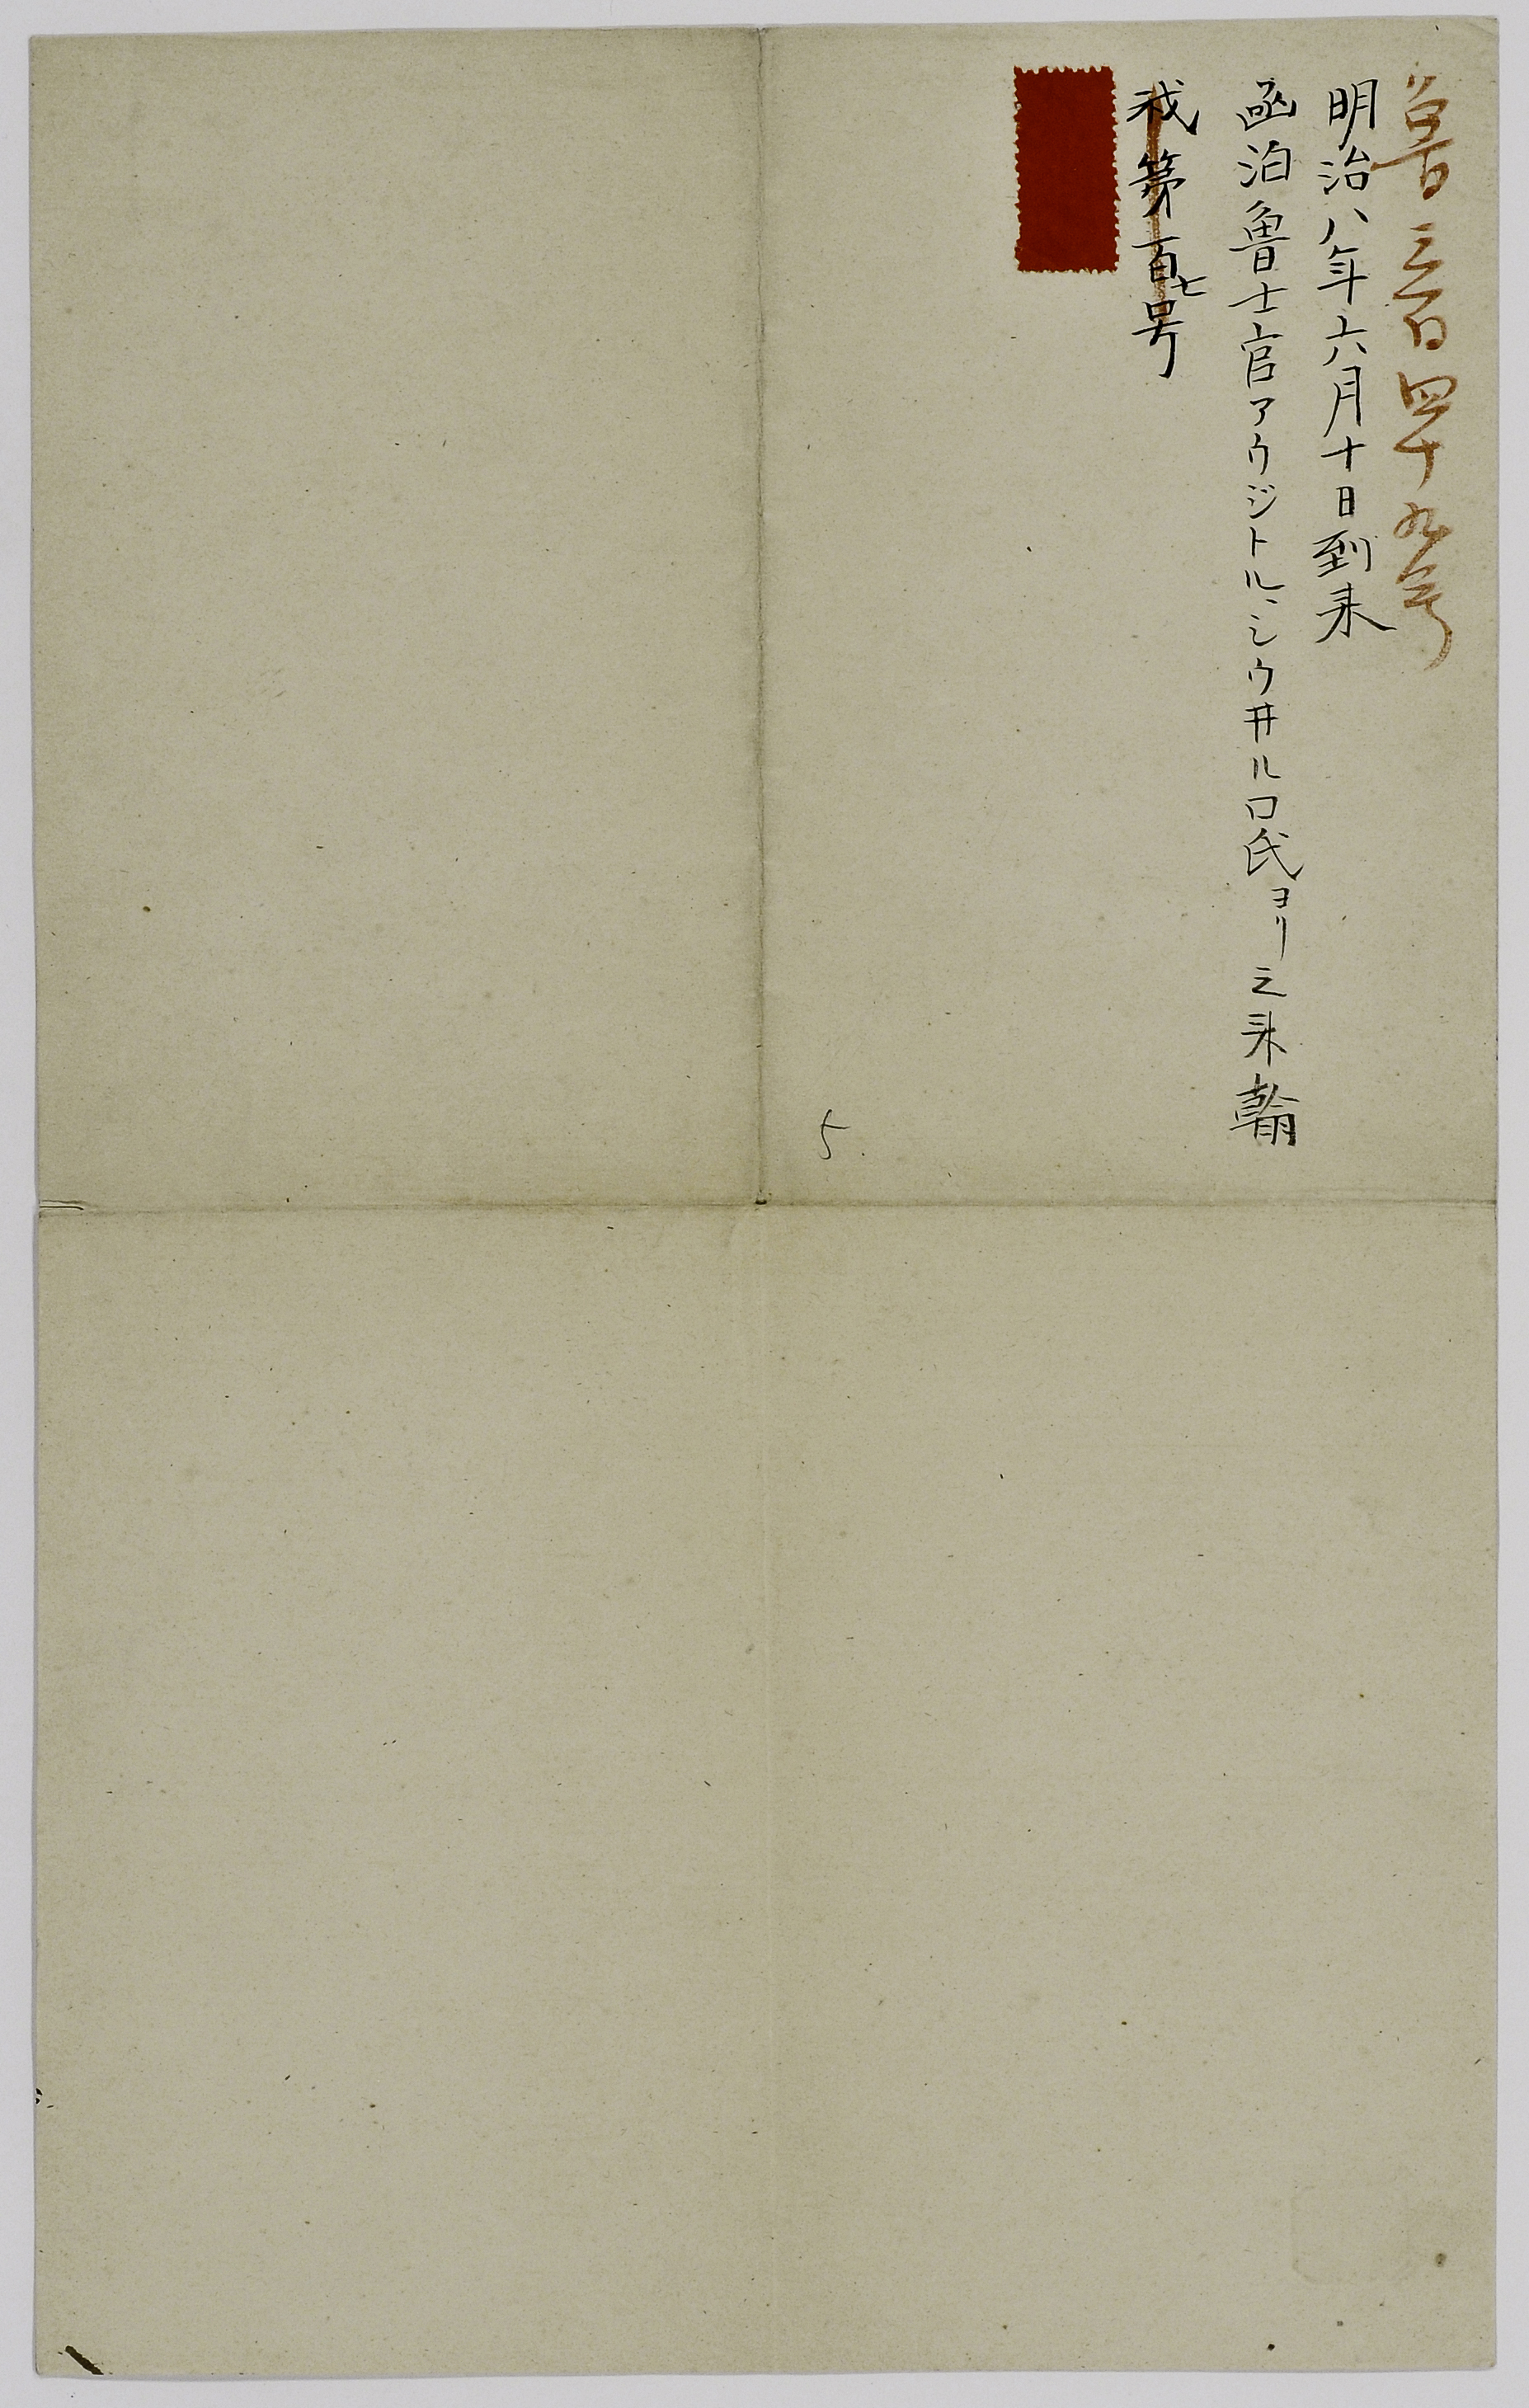 魯三百四十九号
明治八年六月十日到来
函泊魯士官アウジトル、シウ井ルロ氏ヨリ之来翰
第百七号
5.